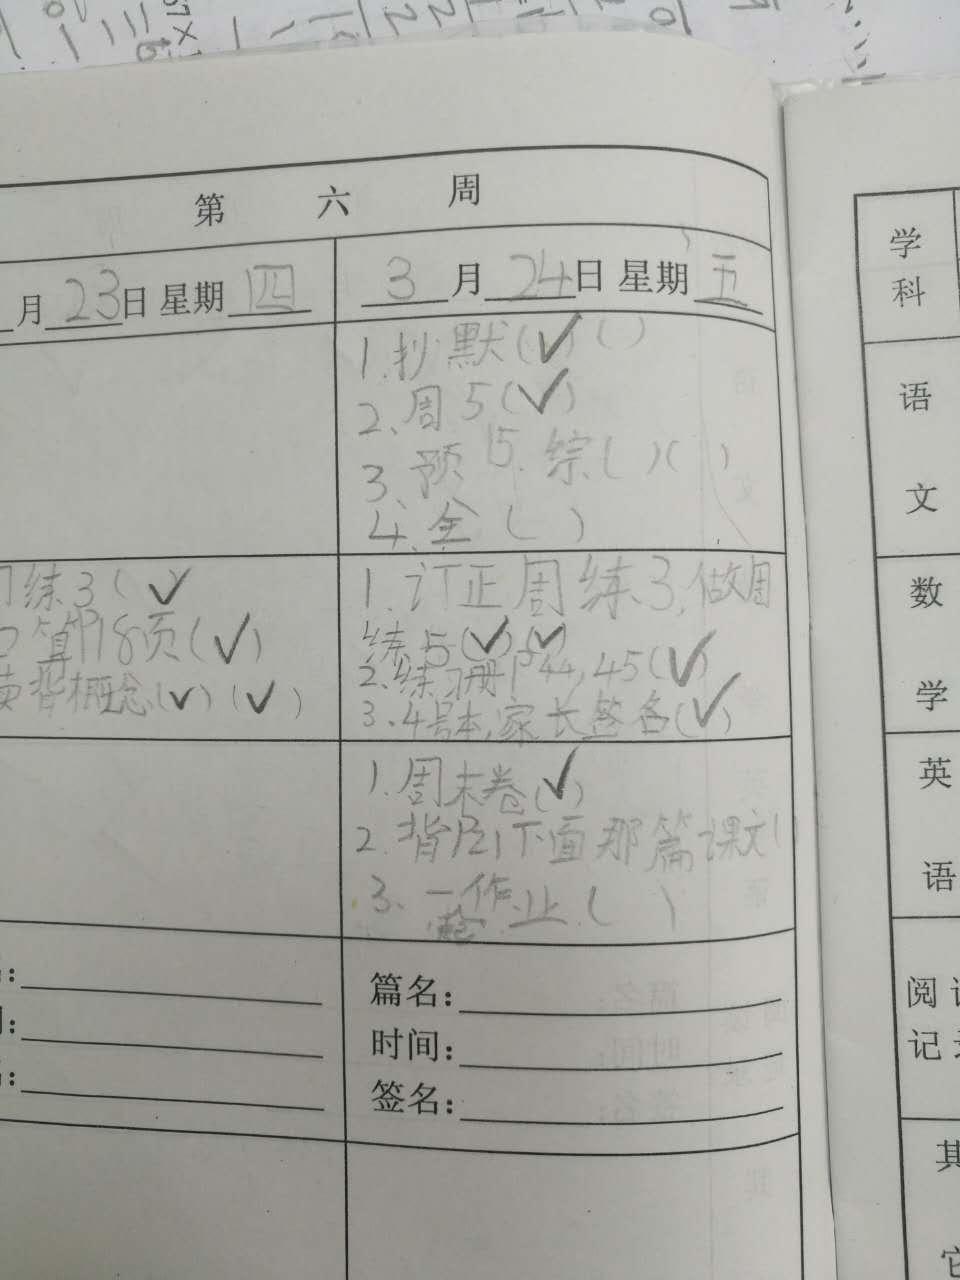 第 六 周
月 23 日 星期 四
3 月 24 日 星期 五
1.抄.默(✓)( )
2、周5(✓)
3、预15.综( )( )
4、全( )
练3(✓)
算P18页(✓)
读背概念(✓)(✓)
1.订正周练3,做周
练5(✓)(✓)
2.练习册P44,45(✓)
3、4号本,家长签名(✓)
1.周末卷(✓)
2.背 下面那篇课文(
3.一 作业.( )
篇名:
时间:
签名:
学
科
语
文
数
学
英
语
阅
记
其
它